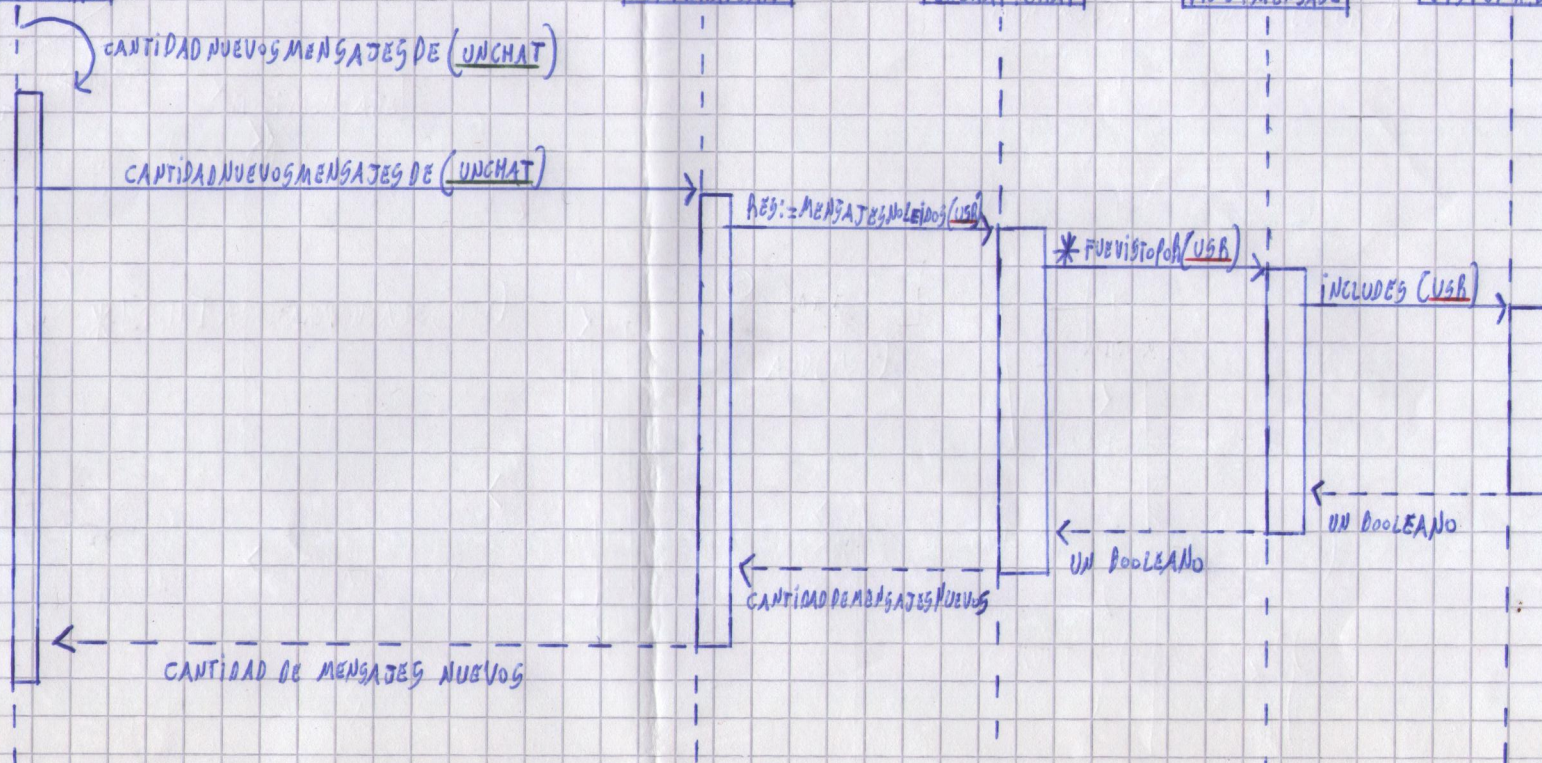 CANTIDADNUEVOSMENSAJESDE (UNCHAT)
CANTIDADNUEVOSMENSAJESDE (UNCHAT)
RES:=MENSAJESNOLEIDOS(USR)
* FUEVISTOPOR(USR)
INCLUDES (USR)
UN BOOLEANO
UN BOOLEANO
CANTIDADDEMENSAJESNUEVOS
CANTIDAD DE MENSAJES NUEVOS